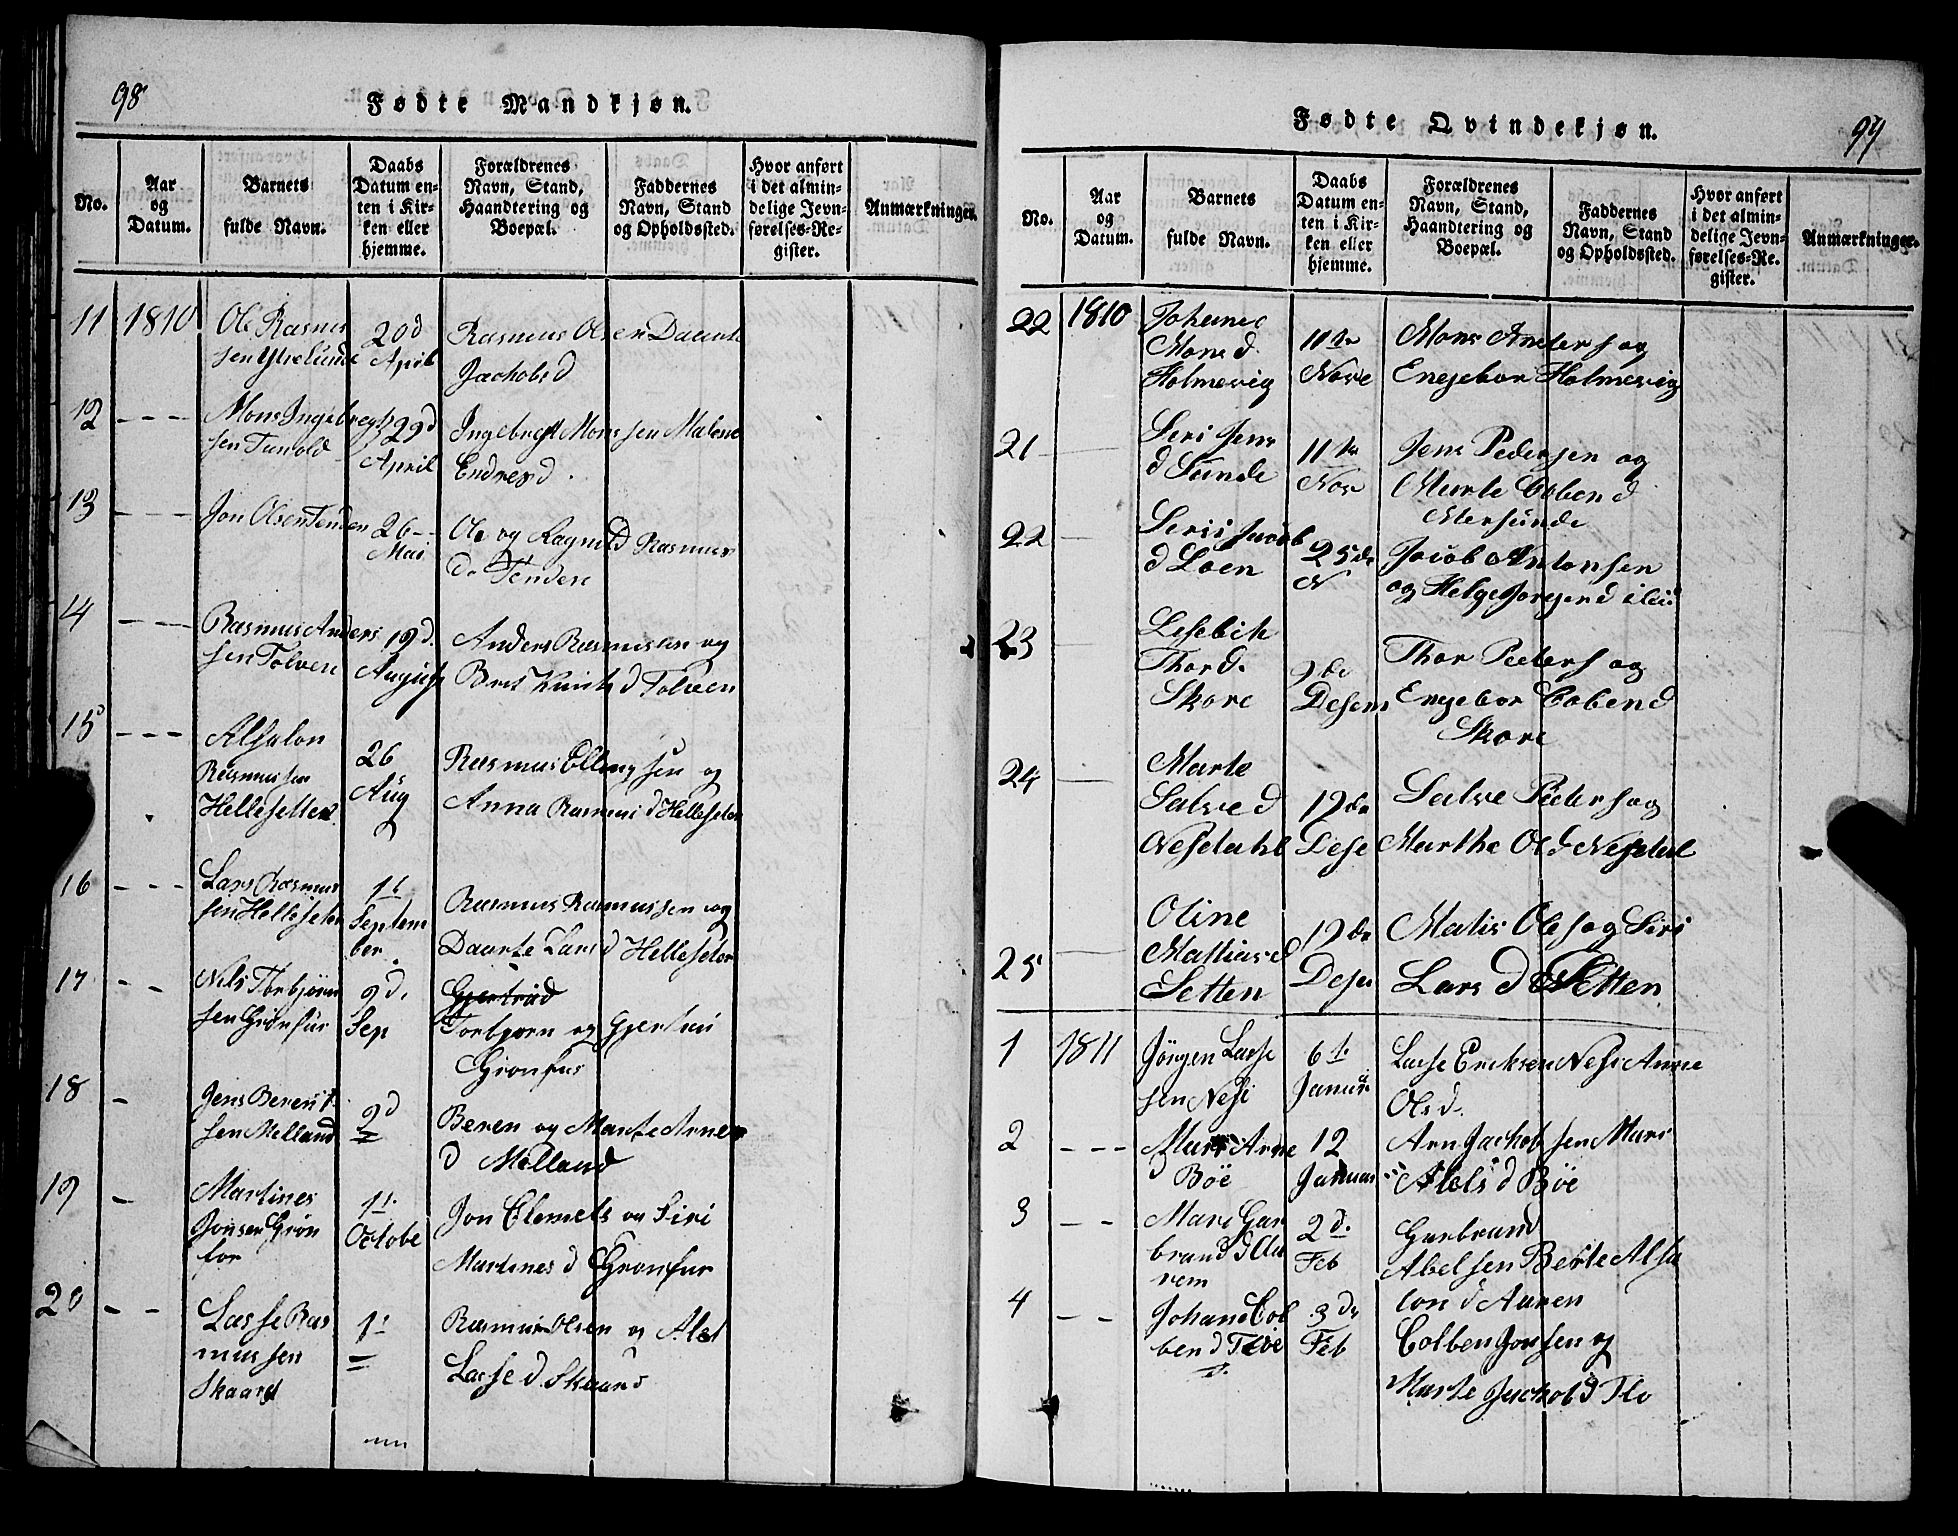 98
Fødte Mandkjøn.
No.
Aar
og
Datum.
Barnets
fulde Navn.
Daabs
Datum en-
ten i Kir-
ken eller
hjemme.
Forældrenes
Navn, Stand,
Haandtering og
Boepæl.
Faddernes
Navn, Stand
og Opholdssted.
Hvor anført
i det almin-
delige Jevn-
førelses-Re-
gister.
Anmærkninger.
11 1810 Ole Rasmus
sen Ytrelunde
20d
April
Rasmus Olsen Daarte
Jachobsd
12 - - - Mons Ingebregt
sen Tunold
29d
April
Ingebregt Monssen Malene
Endresd.
13 - - - Jon Olsen Tenden
26--
Mai
Ole og Ragnild Rasmus
d. Tenden
14 - - - Rasmus Anders
sen Tolven
19d.
August
Anders Rasmussen og
Brit Knuts d Tolven
15 - - - Absalon
Rasmussen
Hellesetter
26
Aug
Rasmus Ellingsen og
Anna Rasmus d Helleseter
16 - - - Lars Rasmus
sen Helleseter
1t
Septem
ber
Rasmus Rasmussen og
Daarte Lars d Helleseter
17 - - Nils Torbjørn
sen Grønfur
9d.
Sep
Gjertrud
Torbjorn og Gjertru
Gronfur
18 - Jens Berent
sen Melland
9d
Beren og Marte Arne
d Melland
19 - Martines
Jonsen Grøn
for
1t.
Octobe
Jon Clemets og Siri
Martines d Gronfur
20 - - Lasse Ras
mussen
Skaard
1t
Rasmus Olsen og Alet
Lasse d. Skaard
99
Fødte Qvindekjøn.
No.
Aar
og
Datum.
Barnets
fulde Navn.
Daabs
Datum en-
ten i Kir-
ken eller
hjemme.
Forældrenes
Navn, Stand,
Haandtering og
Boepæl.
Faddernes
Navn, Stand
og Opholdssted.
Hvor anført
i det almin-
delige Jevn-
førelses-Re-
gister.
Anmærkninger.
22 1810 Johane
Mons d.
Holmevig
11te
Nove
Mons Anders og
Engebor Holmevig
21 Seri Jens
d Sunde
11te
Nov
Jens Pedersen og
Marte Coben d
Mersunde
22 Seris Jacob
d Loen
25de
N
Jacob Antonsen
og Helge Jorgen d ibid
23 Lesebit
Thor d.
Skore
9de
Desem
Thor Peders og
Engebor Coben d
Skore
24 Marte
Salve d
Nesdahl
19de
Dese
Salve Peders og
Marthe Ols d Nesdal
25 Oline
Mattias d
Setten
19de
Dese
Matis Oles og Siri
Lars d Setten
1 1811 Jörgen Lasse
sen Nesi
6t.
Januar
Lasse Ericksen Nesi Anne
Olsd.
2 - - - Mari Arne
d Böe
12
Januar
Arn Jachobsen Mari
Abels d Böe
3 - - Mari Gar
brand d Au
rem
2d.
Feb
Garbrand
Abelsen Berte Absa
lon d Auren
4 - - Johane Col
ben d Floe
3de
Feb
Colben Jonsen og
Marte Jachob d Flo